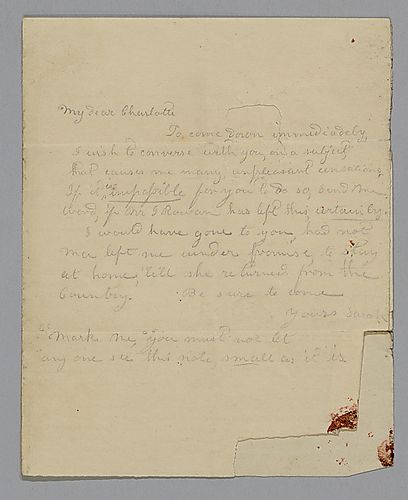 My dear Charlotte
To come down immediately,
I wish to converse with you, on a subject
that causes me many unpleasant sensations.
If it's impossible for you to do so, send me
word, if Mr I Rowan has left this certain by.
I would have gone to you had not
Ma left me under promise, to stay
at home, till she returned from the
Country. Be sure to come
Yours Sarah
Mark me, you must not let
any one see this note, small as it is